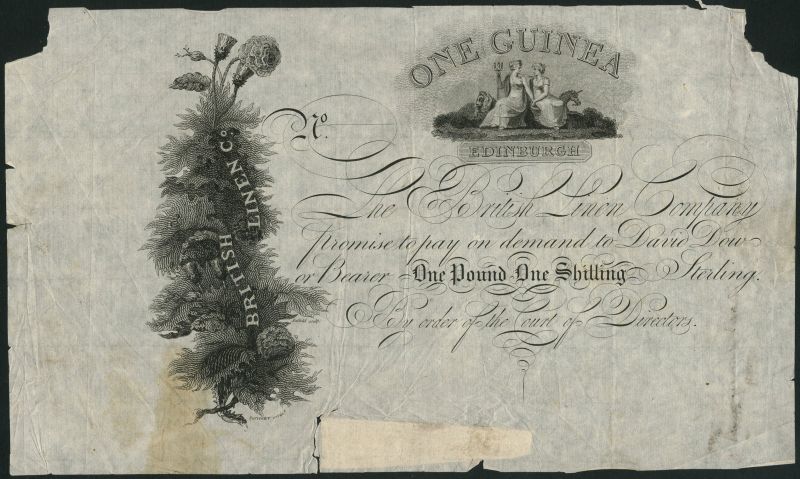 ONE GUINEA
No.
EDINBURGH
The British Linen Company
Promise to pay on demand to David Dow
or Bearer One Pound One Shilling Sterling.
By order of the Court of Directors.
BRITISH LINEN Co.